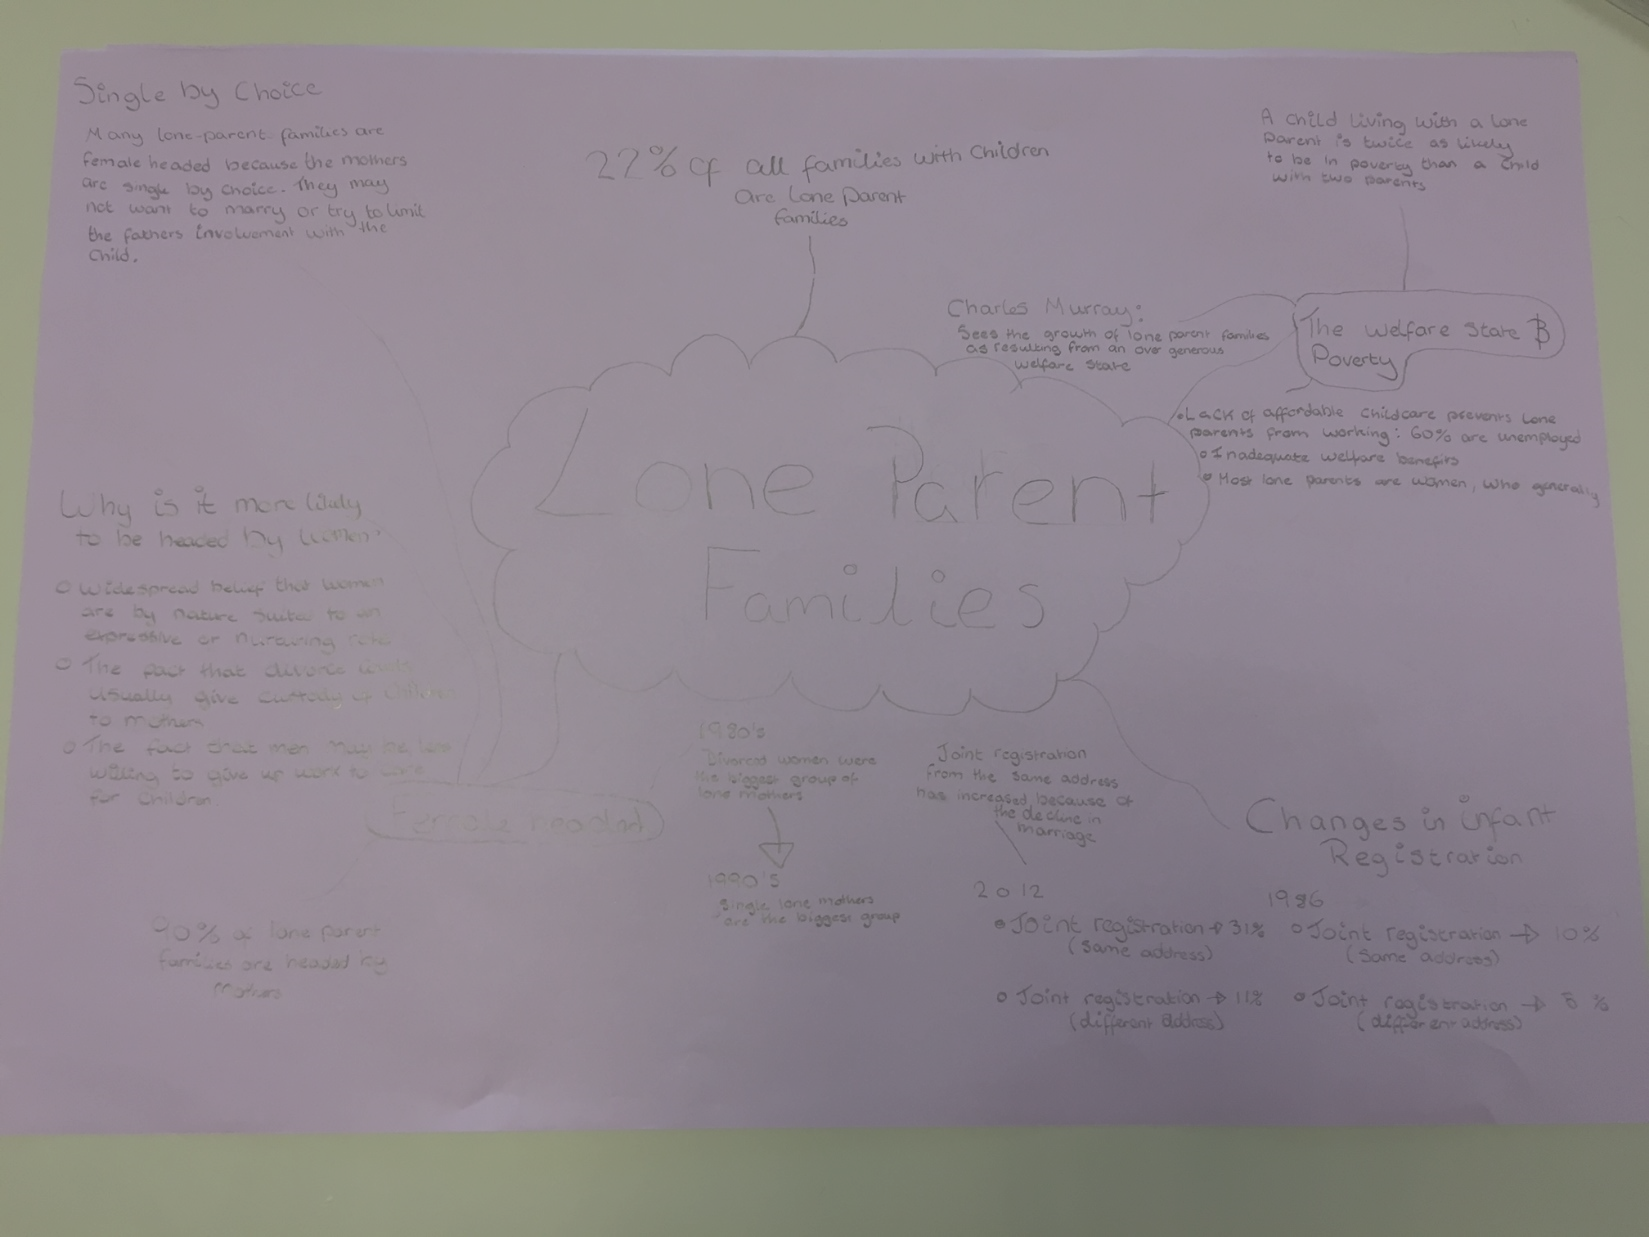 Single by Choice
Many lone-parent families are
female headed because the mothers
are single by choice. They may
not want to marry or try to limit
the fathers involvement with the
Child.
22% of all families with Children
are lone Parent
families
A child living with a lone
Parent is twice as likely
to be in poverty than a child
with two parents
Charles Murray:
Sees the growth of lone parent families
as resulting from an over generous
welfare state
The welfare state &
Poverty
Lack of affordable childcare prevents lone
parents from working: 60% are unemployed
Inadequate welfare benefits
Most lone parents are women, who generally
Lone Parent
Families
Why is it more likely
to be headed by women
Widespread belief that women
are by nature suited to an
expressive or nurturing role
The fact that divorce
usually give custody of Children
to mothers
The fact that men may be less
willing to give up work to care
for children.
Female headed
90% of lone parent
families are headed by
Mothers
1980's
Divorced women were
the biggest group of
lone mothers
1990's
Single lone mothers
are the biggest group
Joint registration
from the same address
has increased because of
the decline in
marriage
Changes in infant
Registration
2012
Joint registration → 31%
(same address)
Joint registration → 11%
(different address)
1986
Joint registration → 10%
(same address)
Joint registration → %
(different address)